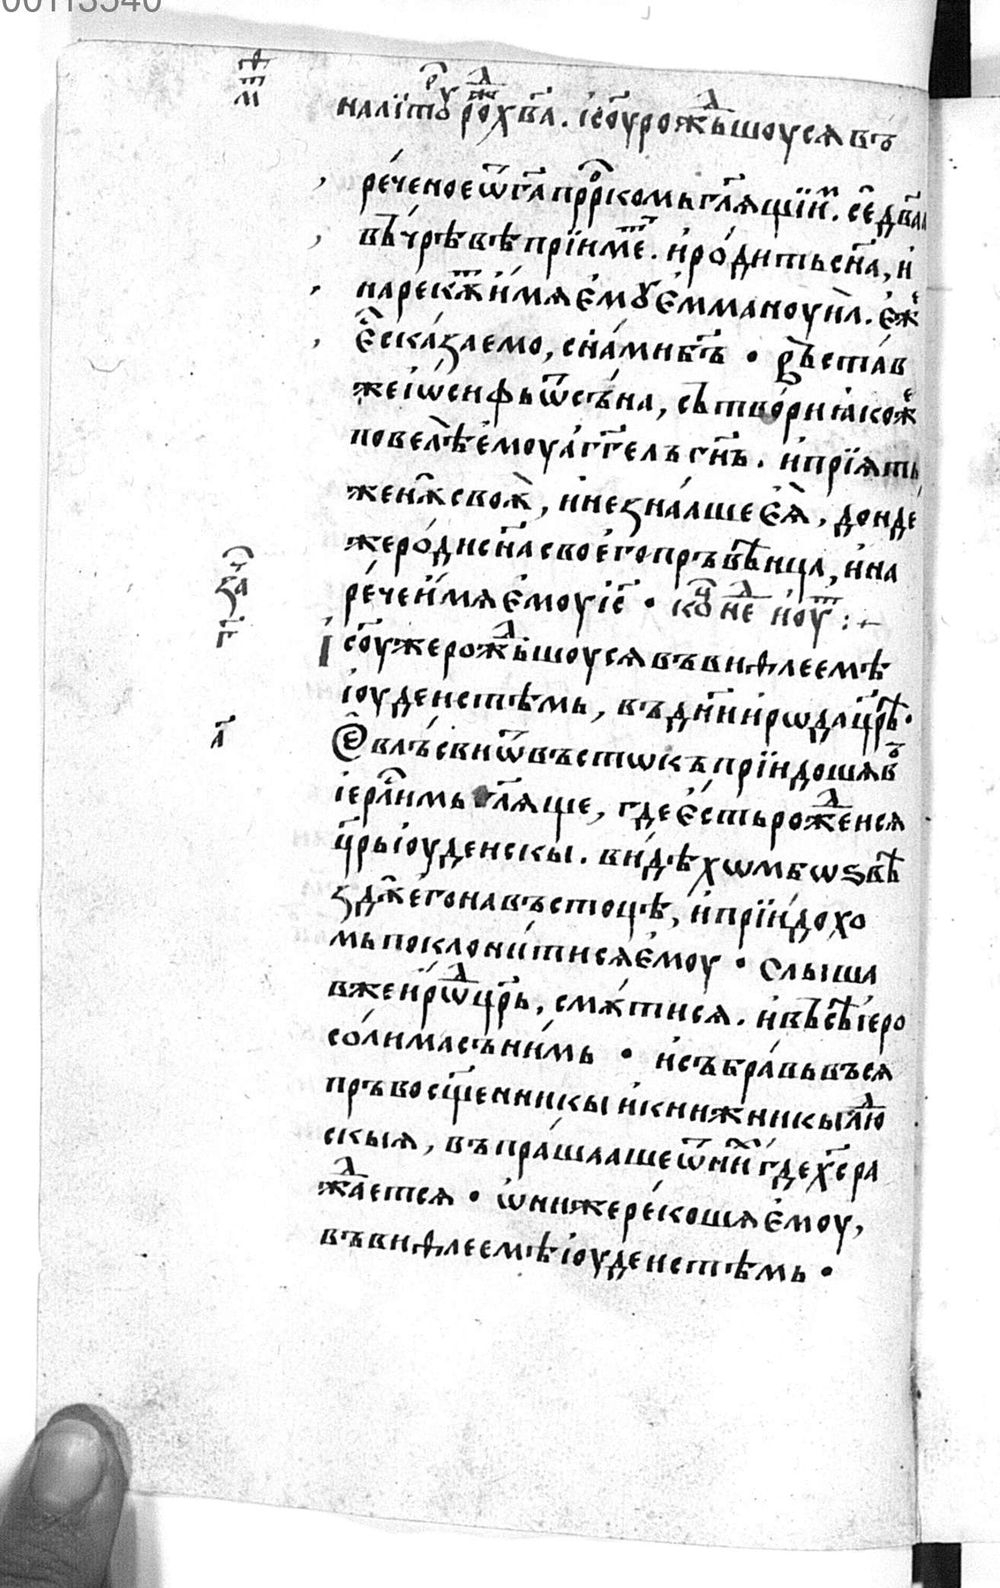 00113540
на лїтоурⷢ҇ рожⷣ҇ х҃ва. і҆с҃оу рожⷣьшоусѧ въ
ре́ченое ѿ г҃а прⷪ҇ркомь гл҃ѧщїи́мⷨ. сѐ дв҃аа
въ чрѣвѣ прїи́метⷮ. и҆ ро́дить сн҃а, и҆
нарекѫтⷮ и҆́мѧ є҆мꙋ є҆мманоуи́л. є҆́жⷷ
є҆с҃ ска́заемо, с на́ми б҃ъ · въста́в
же і҆ѡ́сифь ѿ съна, сътво́ри ꙗ҆кожⷷ
повелѣ̀ є҆моу а҆́гг҃елъ г҃нъ. и҆ прїѧть
женѫ̀ своѫ̀, и҆ не зна́аше є҆ѧ̀, до́нде
же ро́ди сн҃а своего̀ пръвѣ́нца, и҆ на
ре́че и҆́мѧ є҆моу і҆с҃ · коцⷰ҇ неⷣ и҆ оутⷮ :~
за҃
г҃
І҆с҃оу же рожⷣьшоусѧ въ виѳлеемѣ
і҆оуде́истѣмь, въ дн҃и и҆́рѡда цр҃ѣ ·
а҃
Се̑ влъсви ѿ въстѡкъ прїи́дошѧ въ
і҆ерⷭ҇лимь гл҃ѧще, где є҆́сть рожⷣенсѧ
цр҃ь і҆оуде́искы. ви́дѣхѡм бѡ ѕвѣ
здѫ є҆го на въстоцѣ, и҆ прїи́дохо
мь поклони́тисѧ є҆моу · Слыша
в же и҆́рѡдⷣ цр҃ь, смѫ́тисѧ. и҆ въсь і҆еро
со́лима съ ни́мь · и҆ събра́вь въсѧ
пръвосщ҃е́нникы и҆ книжникы люⷣ
скыѧ, въпра́шааше ѿ ни́хⷯ где х҃с ра
жⷣаетсѧ · ѡ҆ни же реко́шѧ є҆моу,
въ виѳлеемѣ і҆оуде́истѣмь ·